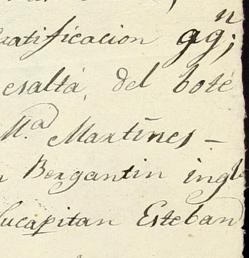 ratificacion
esalta, del bote
M.ª Martines –
Bergantin ingl
Sucapitan Esteban